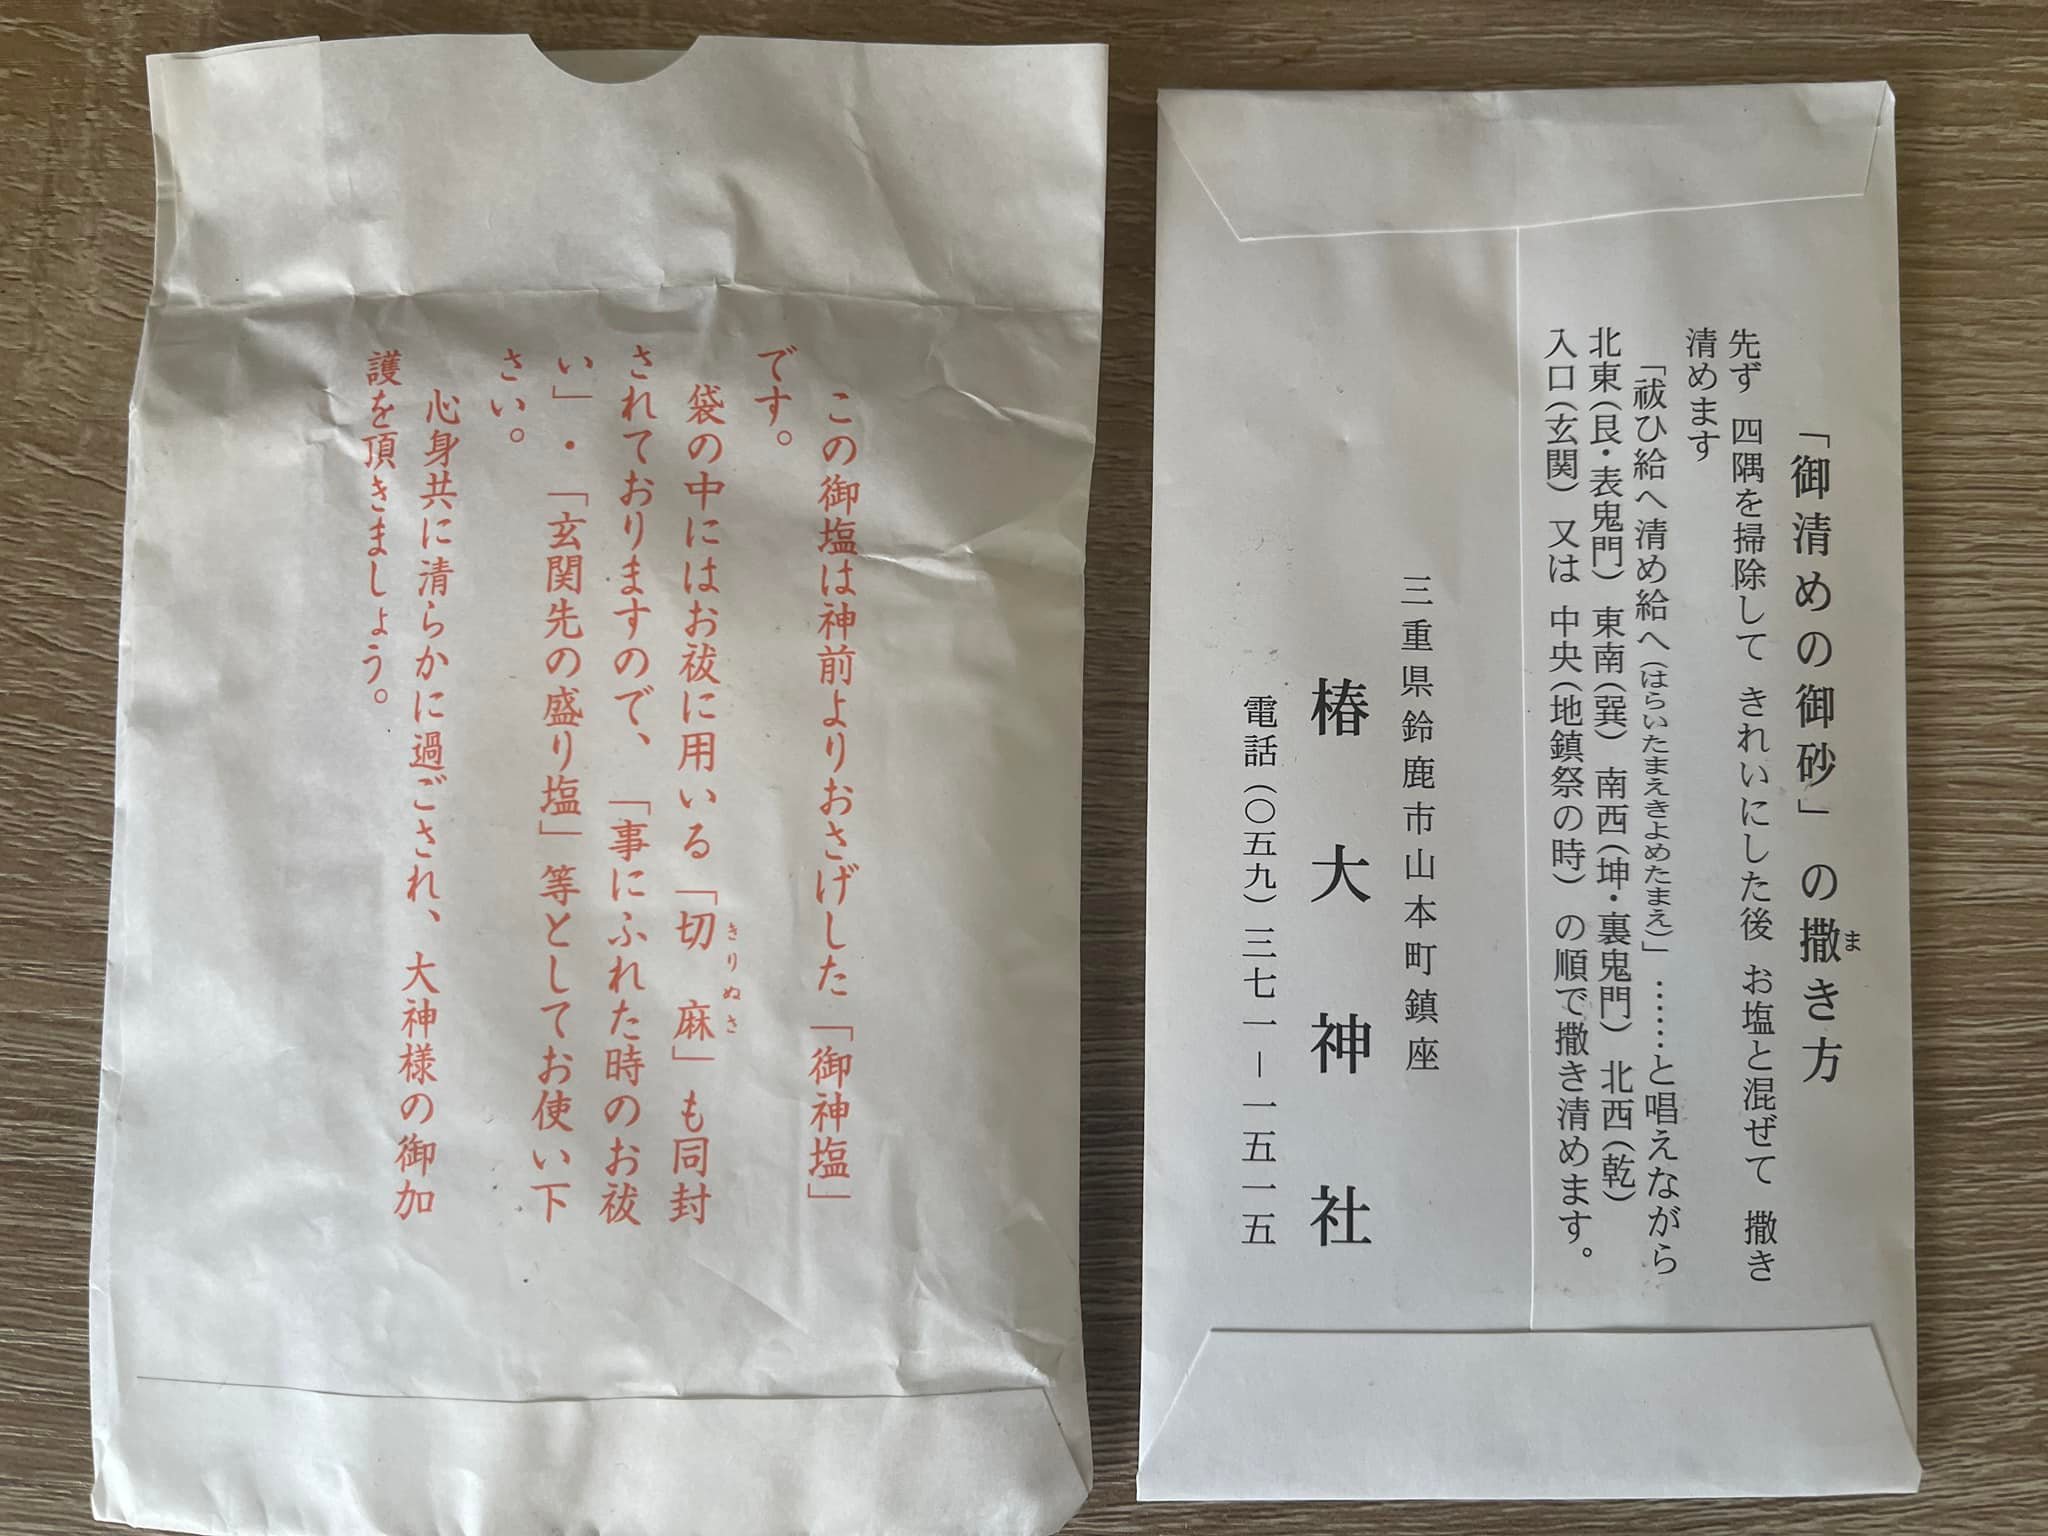 この御塩は神前よりおさげした「御神塩」
です。
袋の中にはお祓に用いる「切麻」も同封
きりぬさ
されておりますので、「事にふれた時のお祓
い」・「玄関先の盛り塩」等としてお使い下
さい。
心身共に清らかに過ごされ、大神様の御加
護を頂きましょう。
「御清めの御砂」の撒き方
ま
先ず 四隅を掃除して きれいにした後 お塩と混ぜて 撒き
清めます
「祓ひ給へ清め給へ(はらいたまえきよめたまえ)」……と唱えながら
北東(艮・表鬼門) 東南(巽) 南西(坤・裏鬼門) 北西(乾)
入口(玄関) 又は 中央(地鎮祭の時) の順で撒き清めます。
三重県鈴鹿市山本町鎮座
椿大神社
電話(〇五九)三七一ー一五一五